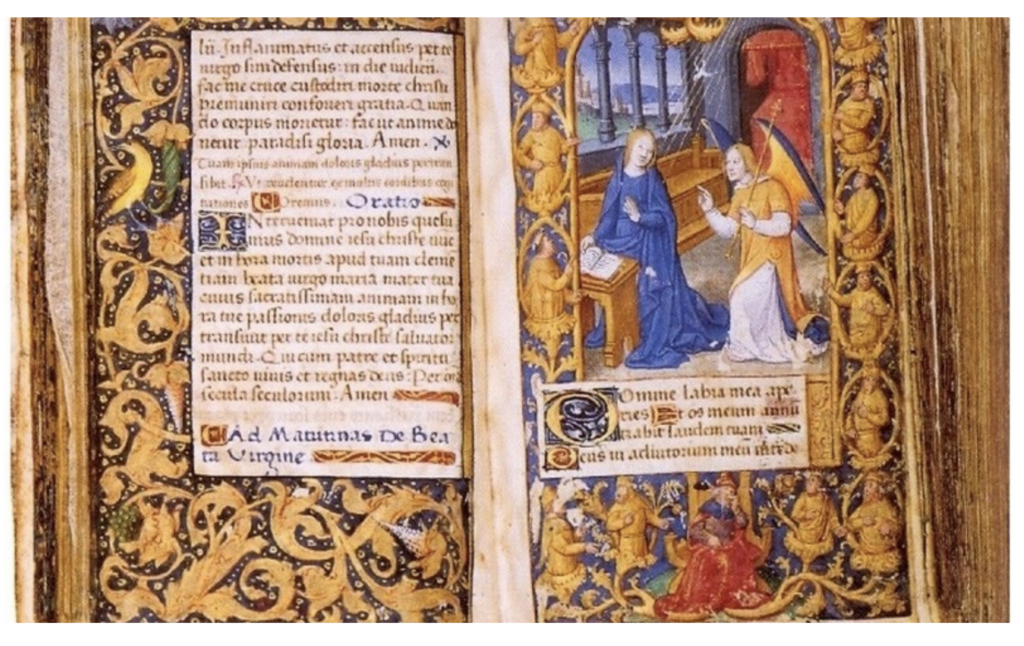 lii. Inflammatus et accensus per te
virgo sim defensus: in die iudicii.
fac me cruce custodiri morte christi
premuniri confoveri gratia. Quan
do corpus morietur: fac ut anime do
netur paradisi gloria. Amen.
Tuam ipsius animam doloris gladius pertran
sibit. Ut revelentur ex multis cordibus cogi
tationes Oremus. Oratio
INterveniat pro nobis quesu
mus domine iesu christe nunc
et in hora mortis apud tuam cleme
tiam beata virgo maria mater tua
cuius sacratissimam animam in ho
ra tue passionis doloris gladius per
transivit per te iesu christe salvator
mundi. Qui cum patre et spiritu
sancto vivis et regnas deus: Per om
secula seculorum. Amen
Ad Matutinas De Bea
ta Virgine
Domine labia mea ape
ries Et os meum annu
tiabit laudem tuam
Deus in adiutorium meum